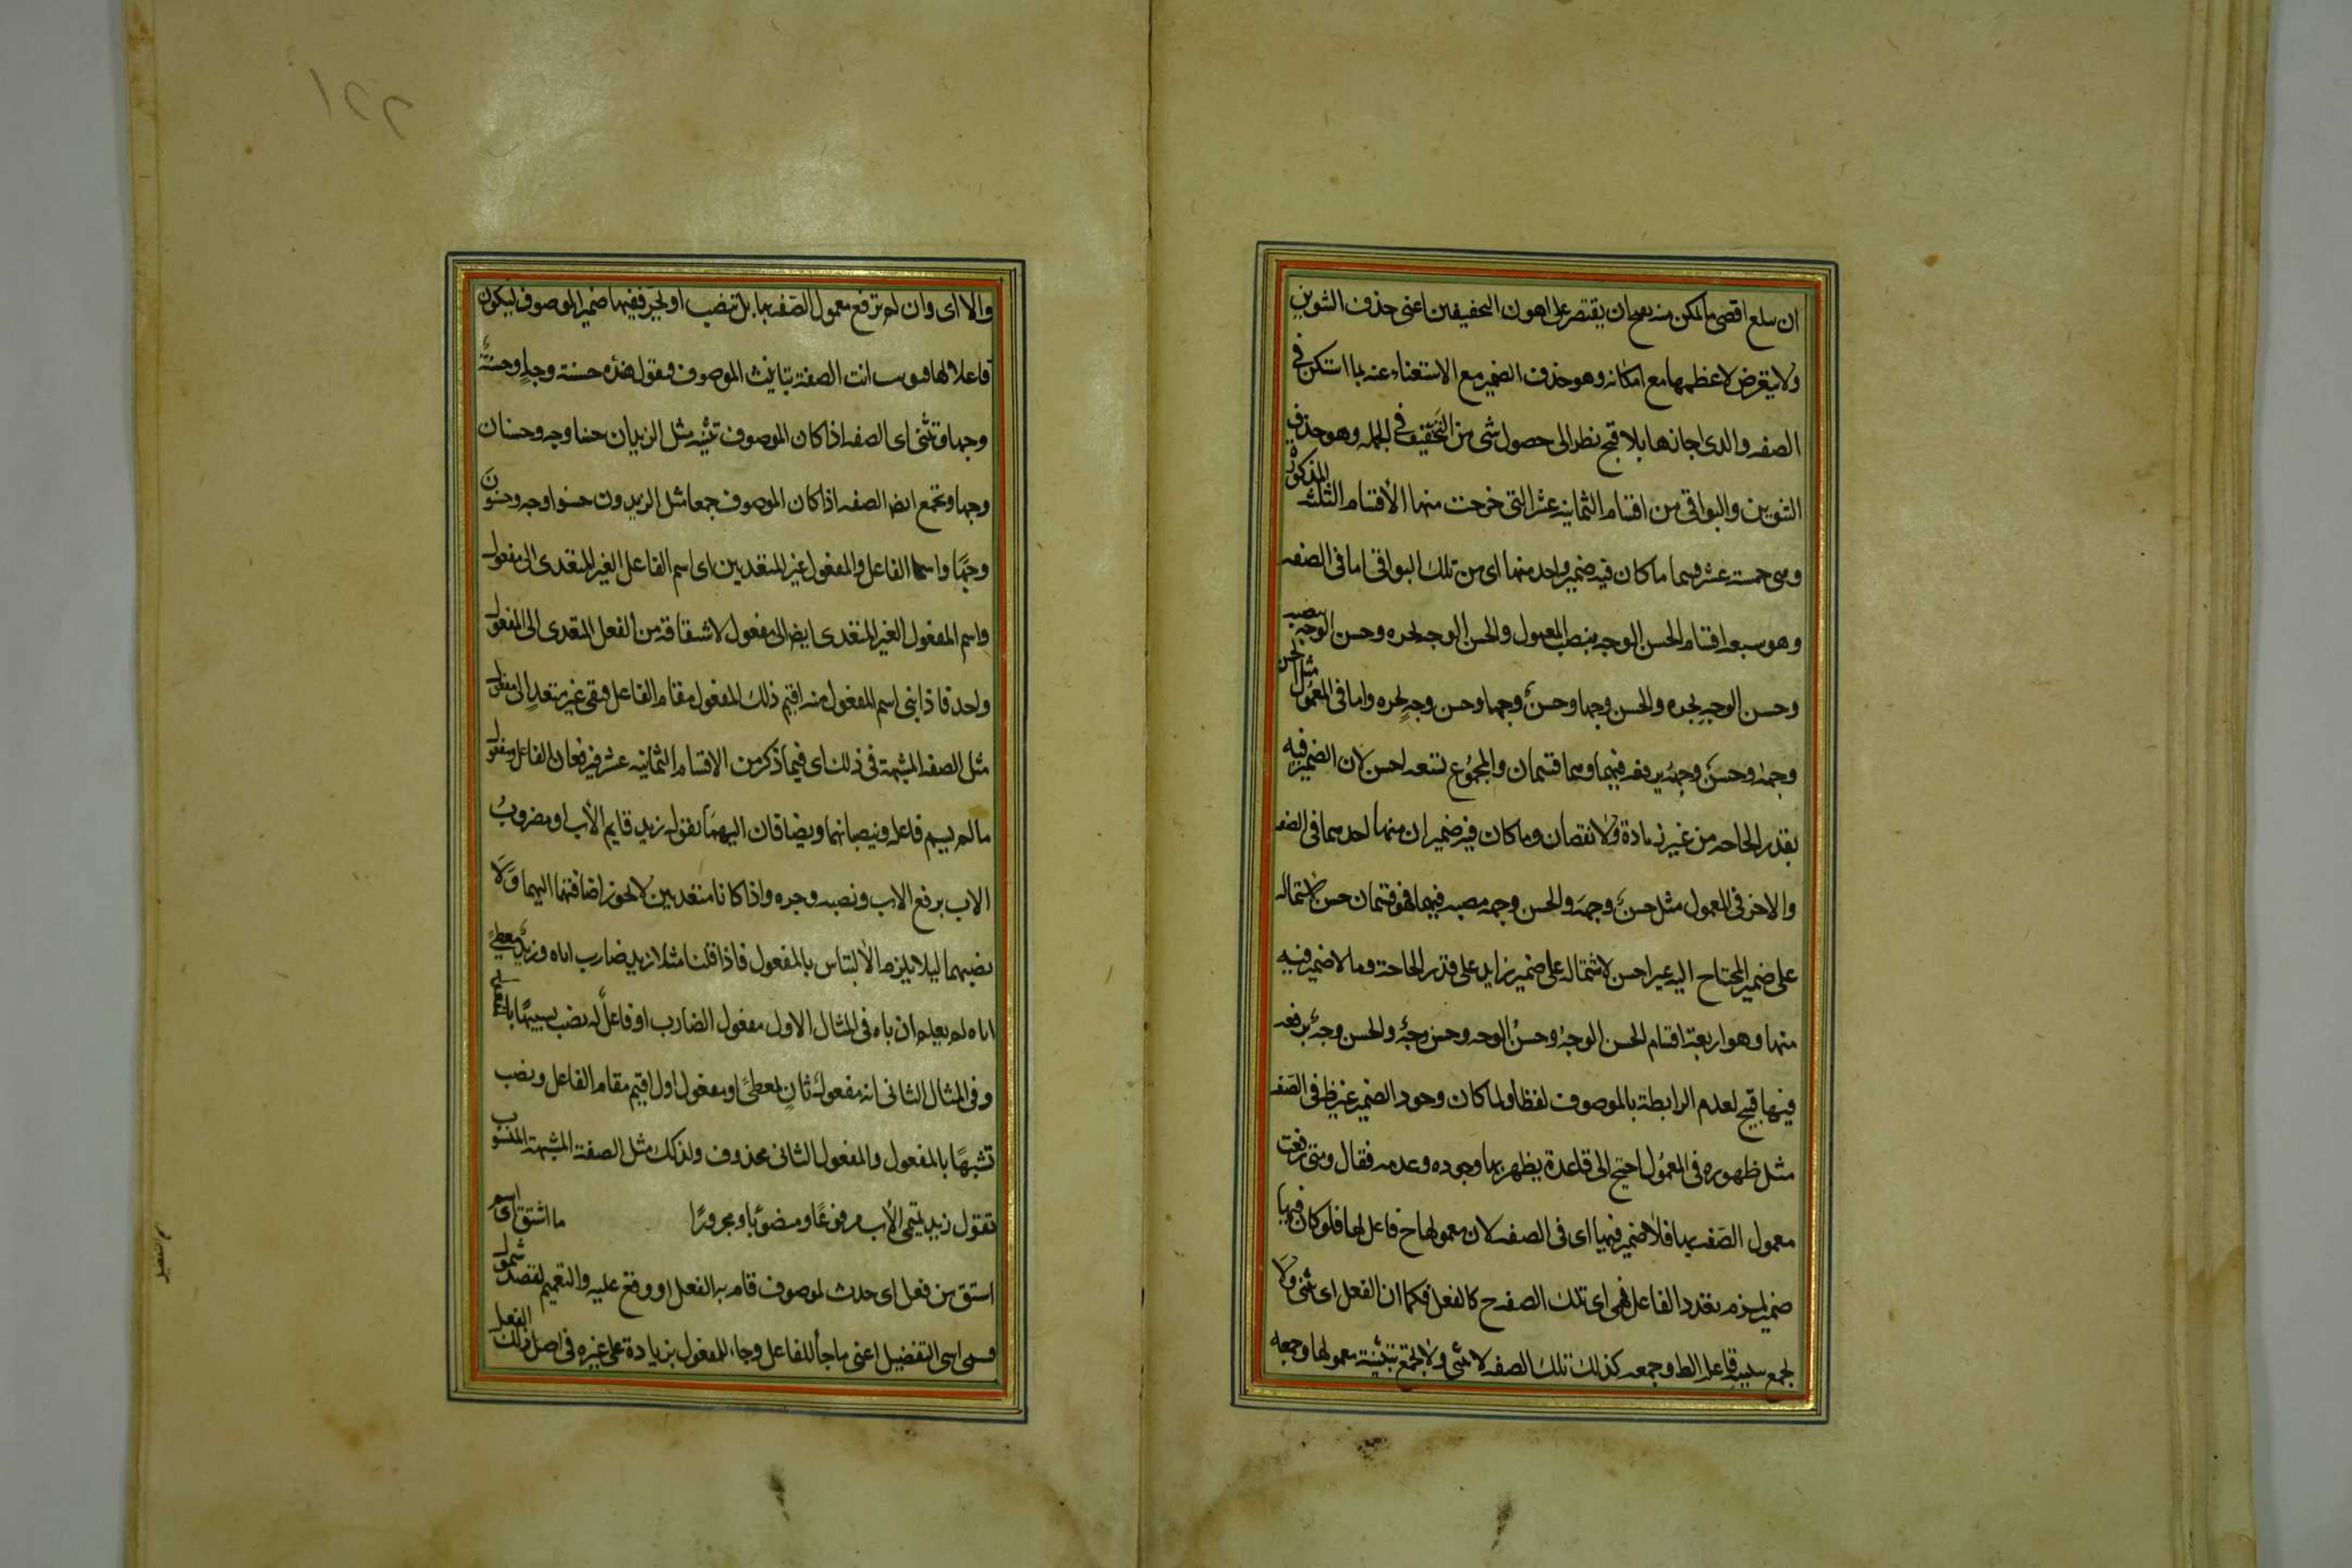 ان يبلغ اقصى ما يمكن منه يقبح ان يقتصر على اهون التخفيفين اعنى حذف التنوين
ولا يتعرض لاعظمهما مع امكانه وهو حذف الضمير مع الاستغناء عنه بما استكن فى
الصفه والذى اجازها بلا قبح نظر الى حصول شى من التخفيف فى الجمله وهو حذف
التنوين والبواقى من اقسام الثمانية عشر التى خرجت منها الأقسام الثلثه المذكورة
وهى خمسة عشر قسما ما كان فيه ضمير واحد منها اى من تلك البواقى اما فى الصفه
وهو سبعه اقسام الحسن الوجه بنصب المعمول والحسن الوجه بجره وحسن الوجه بنصبه
وحسن الوجه بجره والحسن وجها وحسنٌ وجها وحسن وجهٍ بجره واما فى المعمول مثل الحسن
وجهه وحسنٌ وجهه برفعه فيهما وهما قسمان والمجموع تسعه احسن لان الضمير فيه
بقدر الحاجه من غير زيادة ولا نقصان وما كان فيه ضميران منها احدهما فى الصفه
والاخر فى المعمول مثل حسنٌ وجهه والحسن وجهه بنصبه فيهما فهو قسمان حسن لاشتماله
على ضمير المحتاج اليه غير احسن لاشتماله على ضمير زايد على قدر الحاجة وما لا ضمير فيه
منها وهو اربعة اقسام الحسن الوجهُ وحسنُ الوجه وحسن وجهٌ والحسن وجهٌ برفعه
فيها قبيح لعدم الرابطة بالموصوف لفظا ولما كان وجود الضمير غير ظ فى الصفه
مثل ظهوره فى المعمول احتيج الى قاعدة يظهر بها وجوده وعدمه فقال ومتى رفعت
معمول الصفه بها فلا ضمير فيها اى فى الصفه لان معمولها ح فاعل لها فلو كان فيها
ضمير لزم تعدد الفاعل فهى اى تلك الصفه ح كالفعل فكما ان الفعل اى ثنى ولا
يجمع بتثنيه فاعل الط وجمعه كذلك تلك الصفه لا تثنى ولا تجمع بتثنية معمولها وجمعه
والا اى وان لم ترفع معمول الصفه بها بل تنصب او تجر ففيها ضمير الموصوف ليكون
فاعلا لها فيوب انت الصفة بتانيث الموصوف فتقول هذه حسنة وجهٍ وحسنةٌ
وجها وتثنى اى الصفه اذا كان الموصوف تثنيه مثل الزيدان حسنا وجه وحسنان
وجها وتجمع ايض الصفه اذا كان الموصوف جمعا مثل الزيدون حسنوا وجه وحسنون
وجهًا واسما الفاعل والمفعول غير المتعديين اى اسم الفاعل الغير المتعدى الى مفعول
واسم المفعول الغير المتعدى ايض الى مفعول لاشتقاقه من الفعل المتعدى الى المفعول
واحد فاذا بنى اسم المفعول منه اقيم ذلك المفعول مقام الفاعل فبقى غير متعدٍ الى مفعول
مثل الصفه المشبهة فى ذلك اى فيما ذكر من الاقسام الثمانيه عشر فيرفعان الفاعل ومفعول
ما لم يسم فاعله وينصبانهما ويضافان اليهما تقول زيد قايم الأب او مضروبُ
الاب برفع الاب ونصبه وجره واذا كانا متعديين لا يجوز اضافتهما اليهما وَلا
نصبهما ليلا يلزم الألتباس بالمفعول فاذا قلنا مثلا زيد ضارب اباه وزيد معطىً
اباه لم يعلم ان اباه فى المثال الاول مفعول الضارب او فاعلٌ له نصب تشبيهًا بالمفعول
وفى المثال الثانى انه مفعولٌ ثانٍ لمعطىً او مفعول اول اقيم مقام الفاعل ونصب
تشبهًا بالمفعول والمفعول الثانى محذوف ولذلك مثل الصفة المشبهة المنسوب
تقول زيد تميمى الأب مرفوعًا ومنصوبًا ومجرورًا ما اشتق اى اسم
اشتق من فعل اى حدث لموصوف قام به الفعل او وقع عليه والتعميم لقصد شمول
قسمى اسم التفضيل اعنى ما جاء للفاعل وجاء للمفعول بزيادة على غيره فى اصل ذلك الفعل